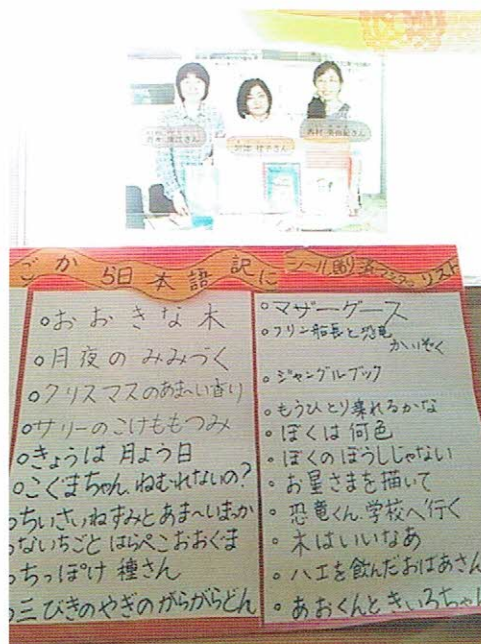 西村
さん
さん
桂子さん
ごから日本語訳に
シール貼り済 リスト
おおきな木
月夜のみみづく
クリスマスのあま〜い香り
サリーのこけももつみ
きょうは月よう日
こぐまちゃん、ねむれないの?
ちいさいねずみとあま〜いまっか
ないちごとはらぺこおおぐま
ちっぽけ種さん
三びきのやぎのがらがらどん
マザーグース
フリン船長と恐竜
かいぞく
ジャングルブック
もうひとり乗れるかな
ぼくは何色
ぼくのぼうしじゃない
お星さまを描いて
恐竜くん、学校へ行く
木はいいなあ
ハエを飲んだおばあさん
あおくんときいろちゃん